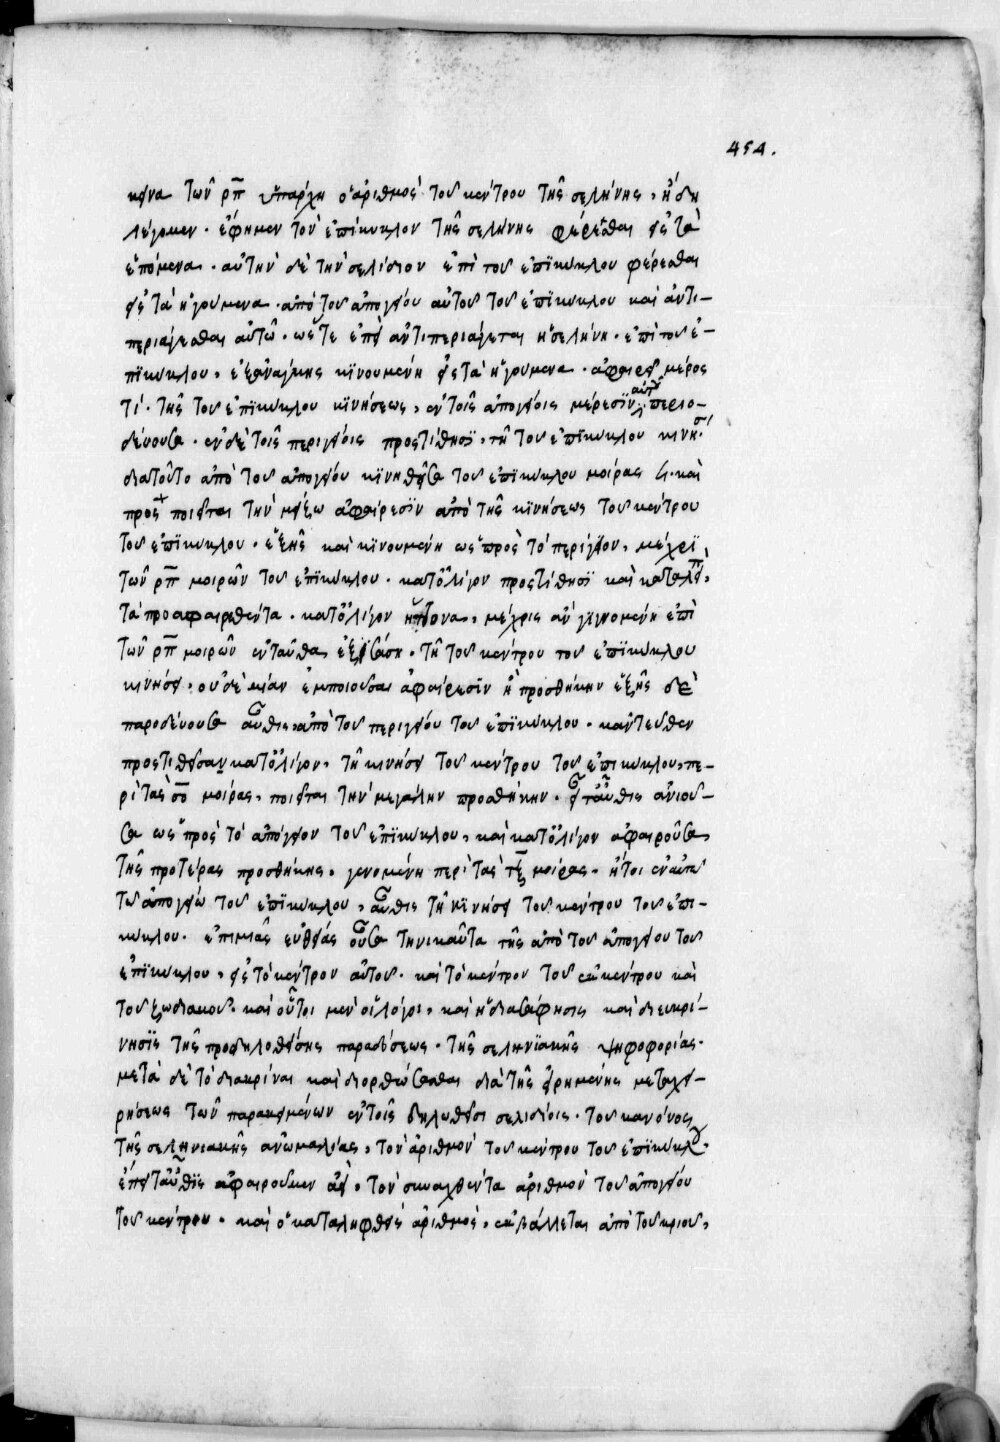 454.
κεινα τῶν ρπ ὑπάρχη ὁ ἀριθμὸς τοῦ κέντρου τῆς σελήνης, ἤδη
λέγομεν. ἔφημεν τὸν ἐπίκυκλον τῆς σελήνης φέρεσθαι εἰς τὰ
ἑπόμενα. αὐτὴν δὲ τὴν σελίδιον ἐπὶ τοῦ ἐπϊκύκλου φέρεσθαι
εἰς τὰ ἡγούμενα. ἀπὸ τοῦ ἀπογείου αὐτοῦ τοῦ ἐπϊκύκλου καὶ ἀντι-
περιάγεσθαι αὐτῶ. ὥστε ἐπεὶ ἀντιπεριάγεται ἡ σελήνη. ἐπὶ τοῦ ἐ-
πϊκύκλου, ἐξανάγκης κϊνουμένη εἰς τὰ ἡγούμενα. ἀφαιρεῖ μέρος
τί. τῆς τοῦ ἐπϊκύκλου κϊνήσεως, ἐν τοῖς ἀπογείοις μέρεσϊν αὐτοῦ περιο-
δεύουσα. ἐν δὲ τοῖς περιγείοις προστίθησϊ, τῆ τοῦ ἐπϊκύκλου κινήσ
διατοῦτο ἀπὸ τοῦ ἀπογείου κϊνηθεῖσα τοῦ ἐπϊκύκλου μοίρας ϟ. καὶ
πρὸς ποιεῖται τὴν μείζω ἀφαίρεσϊν ἀπὸ τῆς κϊνήσεως τοῦ κέντρου
τοῦ ἐπϊκύκλου. ἑξῆς καὶ κϊνουμένη ὡς πρὸς τὸ περίγειον, μέχρϊ
τῶν ρπ μοιρῶν τοῦ ἐπϊκύκλου. κατολίγον προστίθησϊ καὶ καταλείπει,
τὰ προαφαιρεθέντα. κατολίγον ἥττονα, μέχρις ἂν γϊνομένη ἐπὶ
τῶν ρπ μοιρῶν ἐνταῦθα ἐξϊσάση. τῆ τοῦ κέντρου τοῦ ἐπϊκύκλου
κινήσει. οὐδεμίαν ἐμποιοῦσαι ἀφαίρεσϊν ἢ προσθήκην ἑξῆς δὲ
παροδεύουσα αὖθις ἀπὸ τοῦ περιγείου τοῦ ἐπϊκύκλου. καντεῦθεν
προστιθεῖσαν κατολίγον, τῆ κινήσει τοῦ κέντρου τοῦ ἐπικύκλου, πε-
ρὶ τὰς σο μοίρας, ποιεῖται τὴν μεγάλην προσθήκην. εἶτ αὖθις ἀνιοῦ-
σα ὡς πρὸς τὸ ἀπόγειον τοῦ ἐπϊκύκλου, καὶ κατολίγον ἀφαιροῦσα
τῆς προτέρας προσθήκης, γενομένη περὶ τὰς τξ μοίρας. ἤτοι ἐν αὐτῶ
τῶ ἀπογείω τοῦ ἐπϊκύκλου, αὖθις τῆ κϊνήσει τοῦ κέντρου τοῦ ἐπι-
κύκλου. ἐπιμιᾶς εὐθείας οὖσα τηνικαῦτα τῆς ἀπὸ τοῦ ἀπογείου τοῦ
ἐπϊκύκλου, εἰς τὸ κέντρον αὐτοῦ. καὶ τὸ κέντρον τοῦ ἐκκέντρου καὶ
τοῦ ζωδιακοῦ. καὶ οὗτοι μὲν οἱ λόγοι, καὶ ἡ διασάφησις καὶ διευκρί-
νησϊς τῆς προδηλωθείσης παραδόσεως. τῆς σεληνϊακῆς ψηφοφορίας.
μετὰ δὲ τὸ διακρίναι καὶ διορθώσασθαι διὰ τῆς εἰρημένης μεταχει-
ρήσεως τῶν παρακειμένων ἐν τοῖς δηλωθεῖσι σελιδίοις. τοῦ κανόνος
τῆς σεληνιακῆς ἀνωμαλίας, τὸν ἀριθμὸν τοῦ κέντρου τοῦ ἐπϊκύκλου.
ἔπειτ αὖθϊς ἀφαιροῦμεν ἀεὶ, τὸν συναχθέντα ἀριθμὸν τοῦ ἀπογείου
τοῦ κέντρου. καὶ ὁ καταληφθεὶς ἀριθμὸς, ἐκβάλλεται ἀπὸ τοῦ κριοῦ,